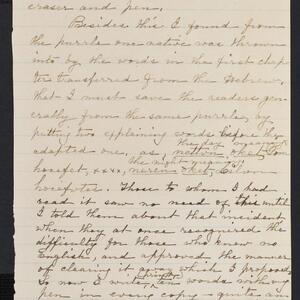 eraser and pen.
Besides this I found from
the puzzle one native was thrown
into by the words in the first chap
ter transferred from the Hebrew,
that I must save the readers gen-
erally from the same puzzle, by
putting the explaining words before the
adapted one, as,
the night
xxxx,
Those to whom I had
read it saw no need of this until
I told them about that incident
when they at once recognized the
difficulty for those who know no
English, and approved the manner
of clearing it which I proposed,
So now I write ten words with my
pen in every copy a quite an